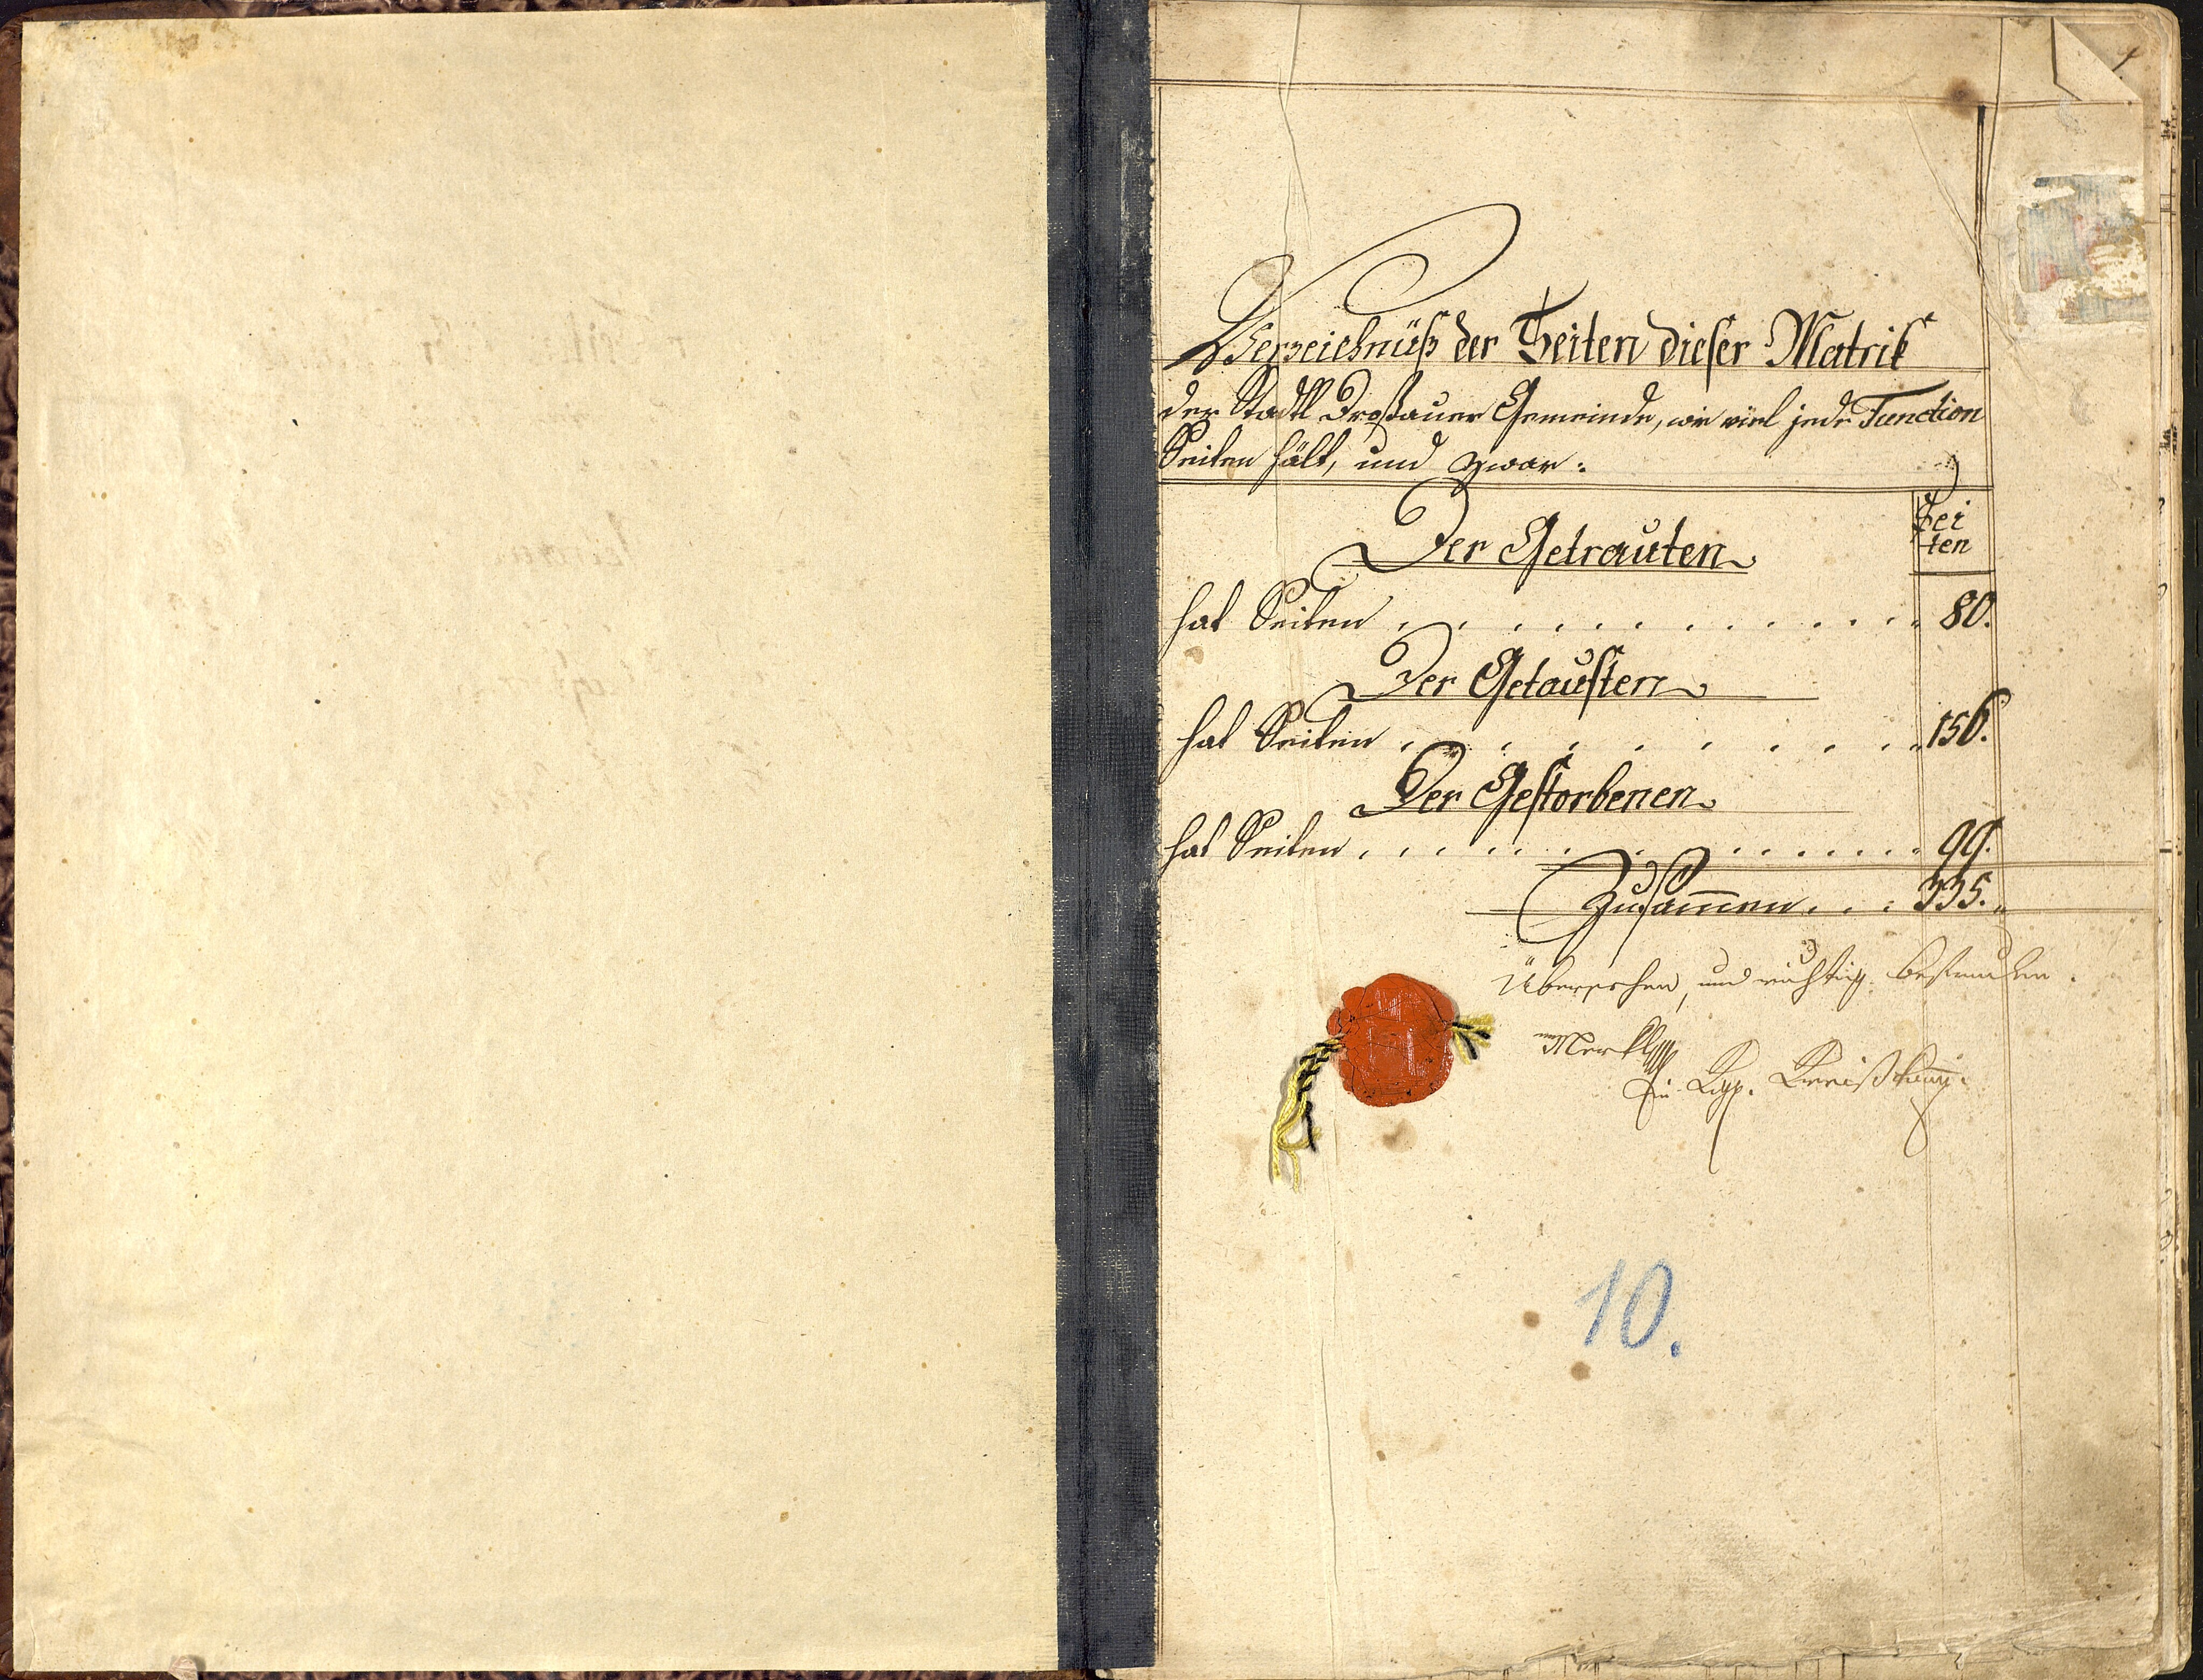 1
Verzeichnüß der Seiten dieser Matrik
der Stadtl Droßauer Gemeinde, wie viel jede Function
Seiten hält, und zwar:
Sei
ten
Der Getrauten
hat Seiten . . . . . . . . . . . . 80.
Der Getauften
hat Seiten . . . . . . . . . 156.
Der Gestorbenen
hat Seiten . . . . . . . . . . . . . . 99.
Zusam̅en . . . 335.
Übersehen, und richtig befunden.
Merkl
10.